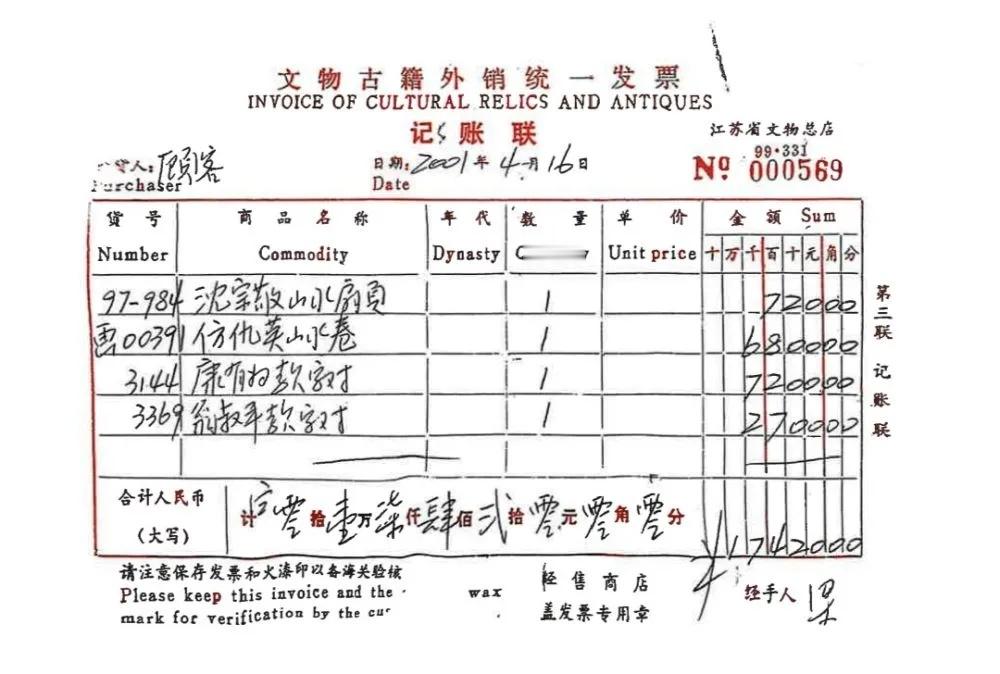 文物古籍外销统一发票
INVOICE OF CULTURAL RELICS AND ANTIQUES
记账联
江苏省文物总店
人: 顾客
Purchaser
日期: 2001年4月16日
Date
99·331
Nº 000569
货号 商品名称 年代 数量 单价 金额 Sum
Number Commodity Dynasty Unit price 十万千百十元角分
97-984 沈宗敬山水扇页 1 72000
画00391 仿仇英山水卷 1 680000
3144 康有为款字对 1 720000
3369 翁叔平款字对 1 270000
合计人民币
(大写)
计 零拾壹万柒仟肆佰贰拾零元零角零分
¥1742000
第三联 记账联
请注意保存发票和火漆印以备海关验核
Please keep this invoice and the wax
mark for verification by the
经售商店
盖发票专用章
经手人